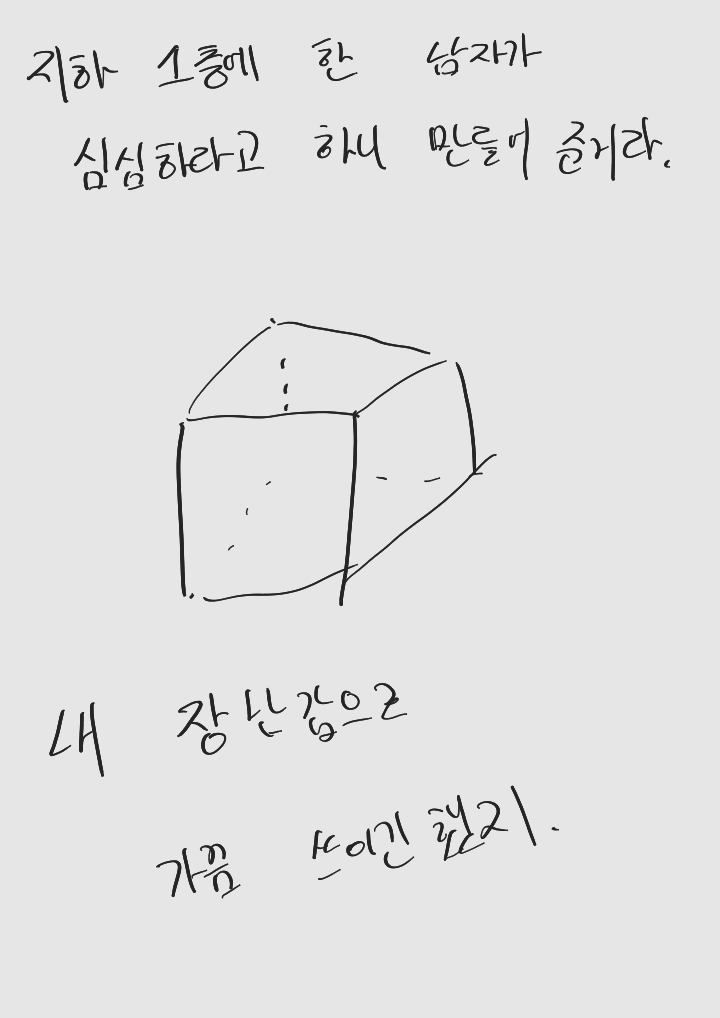 지하 1층에 한 남자가
심심하라고 하니 만들어 준거라.
내 장난감으로
가끔 쓰이긴 했지.